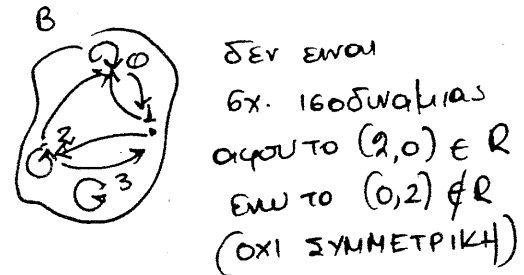 B
0
1
2
3
δεν ειναι
σχ. ισοδυναμιας
αφου το (2,0) ∈ R
ενω το (0,2) ∉ R
(ΟΧΙ ΣΥΜΜΕΤΡΙΚΗ)